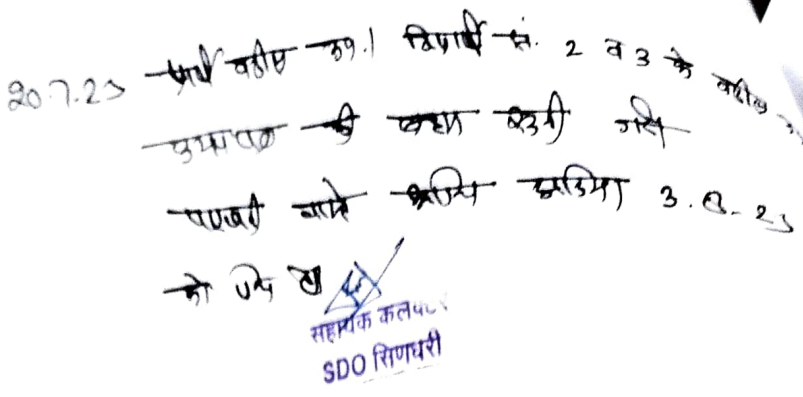 20.7.23 प्रार्थी वकील उप.। विपार्थी सं. 2 व 3 के वकील
की बहस सुनी गयी
पत्रावली वास्ते आदेश 3.8.23
को पेश हो
सहायक कलक्टर
SDO सिणधरी